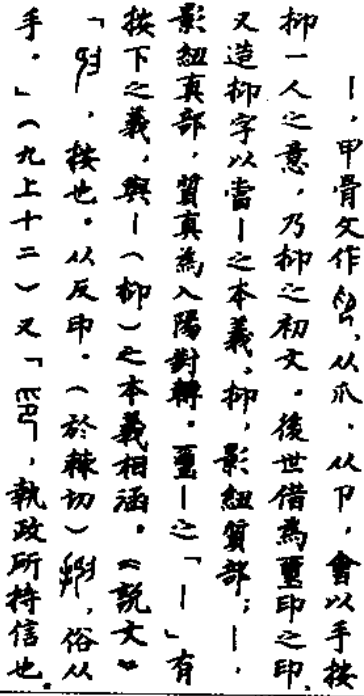 丨，甲骨文作，从爪，从卩，會以手按
抑一人之意，乃抑之初文。後世借為璽印之印，
又造抑字以當丨之本義。抑，影紐質部；丨，
影紐真部，質真為入陽對轉。璽丨之「丨」有
按下之義，與丨（抑）之本義相涵。《說文》
「，按也。从反印。（於棘切），俗从
手。」（九上十二）又「，執政所持信也。